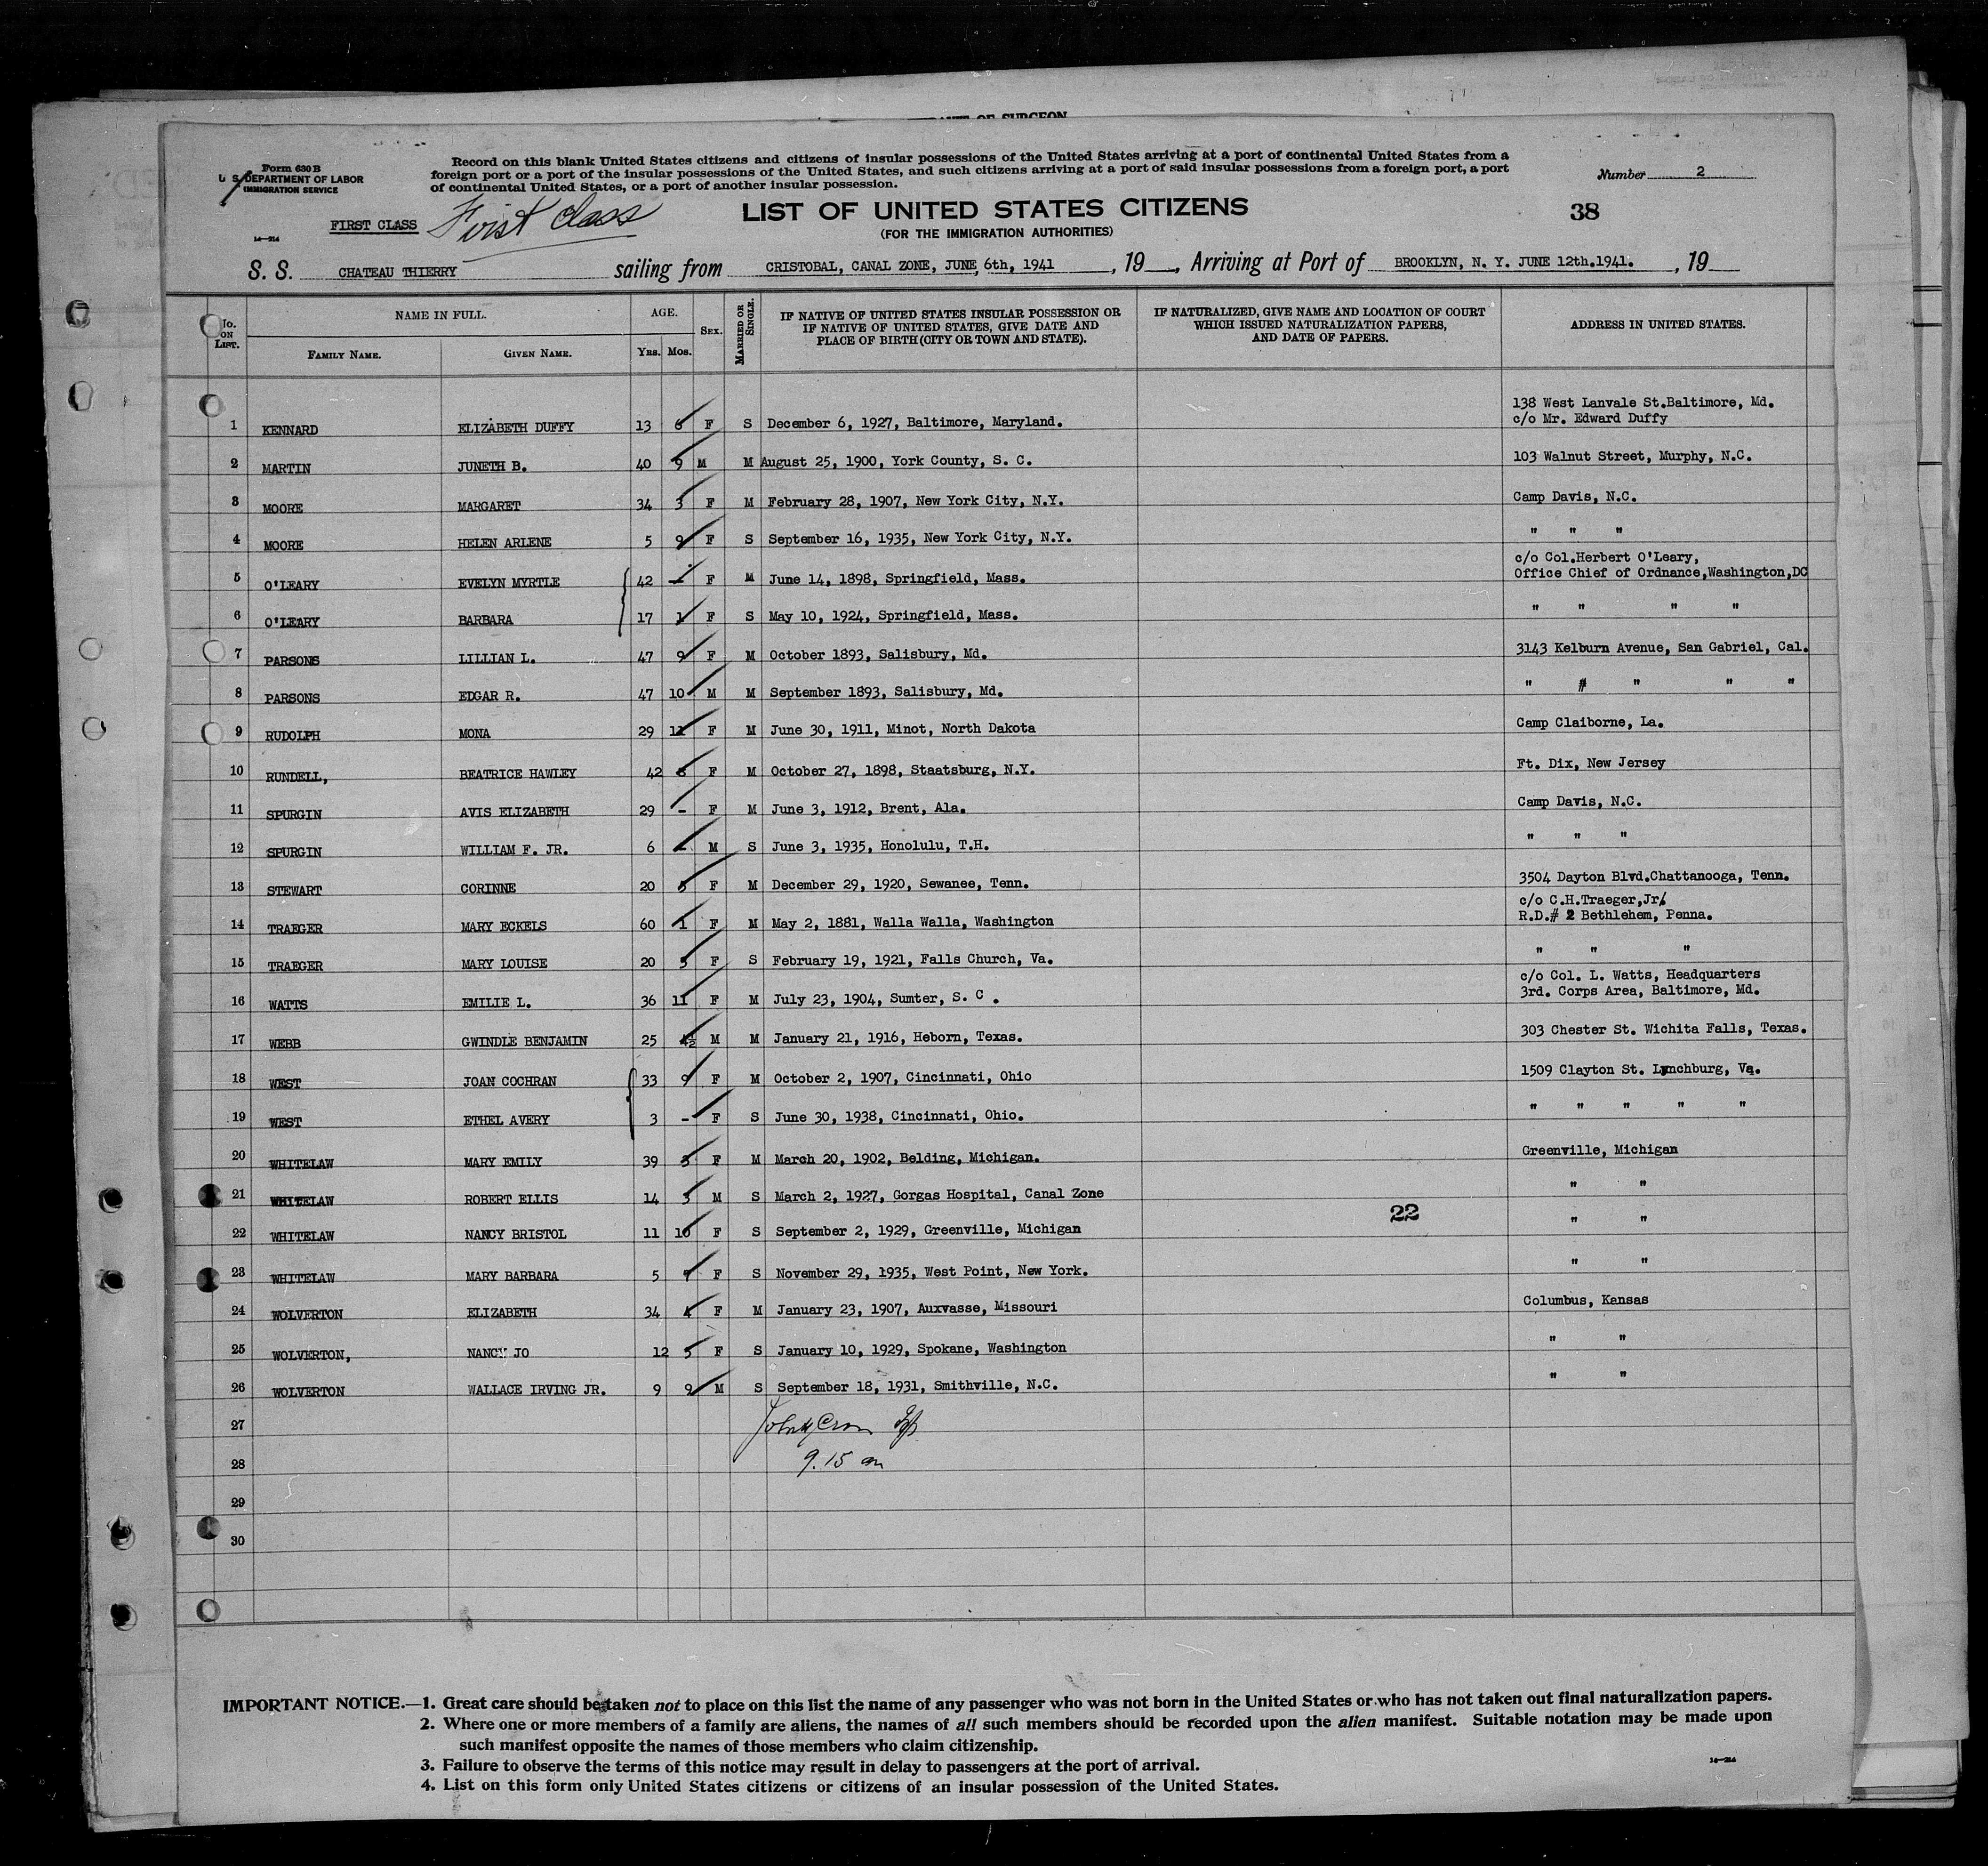 Form 630 B
U. S. DEPARTMENT OF LABOR
IMMIGRATION SERVICE
Record on this blank United States citizens and citizens of insular possessions of the United States arriving at a port of continental United States from a
foreign port or a port of the insular possessions of the United States, and such citizens arriving at a port of said insular possessions from a foreign port, a port
of continental United States, or a port of another insular possession.
Number 2
FIRST CLASS First Class
LIST OF UNITED STATES CITIZENS
38
(FOR THE IMMIGRATION AUTHORITIES)
14—214
S. S. CHATEAU THIERRY sailing from CRISTOBAL, CANAL ZONE, JUNE, 6th, 1941, 19 , Arriving at Port of BROOKLYN, N. Y. JUNE 12th.1941. , 19
No. ON LIST. NAME IN FULL. FAMILY NAME. GIVEN NAME. AGE. YRS. MOS. SEX. MARRIED OR SINGLE. IF NATIVE OF UNITED STATES INSULAR POSSESSION OR IF NATIVE OF UNITED STATES, GIVE DATE AND PLACE OF BIRTH (CITY OR TOWN AND STATE). IF NATURALIZED, GIVE NAME AND LOCATION OF COURT WHICH ISSUED NATURALIZATION PAPERS, AND DATE OF PAPERS. ADDRESS IN UNITED STATES.
138 West Lanvale St.Baltimore, Md.
1 KENNARD ELIZABETH DUFFY 13 6 F S December 6, 1927, Baltimore, Maryland. c/o Mr. Edward Duffy
2 MARTIN JUNETH B. 40 9 M M August 25, 1900, York County, S. C. 103 Walnut Street, Murphy, N.C.
3 MOORE MARGARET 34 3 F M February 28, 1907, New York City, N.Y. Camp Davis, N.C.
4 MOORE HELEN ARLENE 5 9 F S September 16, 1935, New York City, N.Y. " " "
c/o Col.Herbert O'Leary,
5 O'LEARY EVELYN MYRTLE 42 - F M June 14, 1898, Springfield, Mass. Office Chief of Ordnance,Washington,DC
6 O'LEARY BARBARA 17 1 F S May 10, 1924, Springfield, Mass. " " " "
7 PARSONS LILLIAN L. 47 9 F M October 1893, Salisbury, Md. 3143 Kelburn Avenue, San Gabriel, Cal.
8 PARSONS EDGAR R. 47 10 M M September 1893, Salisbury, Md. " # " " "
9 RUDOLPH MONA 29 11 F M June 30, 1911, Minot, North Dakota Camp Claiborne, La.
10 RUNDELL, BEATRICE HAWLEY 42 6 F M October 27, 1898, Staatsburg, N.Y. Ft. Dix, New Jersey
11 SPURGIN AVIS ELIZABETH 29 - F M June 3, 1912, Brent, Ala. Camp Davis, N.C.
12 SPURGIN WILLIAM F. JR. 6 - M S June 3, 1935, Honolulu, T.H. " " "
13 STEWART CORINNE 20 5 F M December 29, 1920, Sewanee, Tenn. 3504 Dayton Blvd.Chattanooga, Tenn.
c/o C.H.Traeger,Jr.
14 TRAEGER MARY ECKELS 60 1 F M May 2, 1881, Walla Walla, Washington R.D.# 2 Bethlehem, Penna.
15 TRAEGER MARY LOUISE 20 3 F S February 19, 1921, Falls Church, Va. " " "
c/o Col. L. Watts, Headquarters
16 WATTS EMILIE L. 36 11 F M July 23, 1904, Sumter, S. C . 3rd. Corps Area, Baltimore, Md.
17 WEBB GWINDLE BENJAMIN 25 4½ M M January 21, 1916, Heborn, Texas. 303 Chester St. Wichita Falls, Texas.
18 WEST JOAN COCHRAN 33 9 F M October 2, 1907, Cincinnati, Ohio 1509 Clayton St. Lynchburg, Va.
19 WEST ETHEL AVERY 3 - F S June 30, 1938, Cincinnati, Ohio. " " " " "
20 WHITELAW MARY EMILY 39 3 F M March 20, 1902, Belding, Michigan. Greenville, Michigan
21 WHITELAW ROBERT ELLIS 14 3 M S March 2, 1927, Gorgas Hospital, Canal Zone " "
22
22 WHITELAW NANCY BRISTOL 11 10 F S September 2, 1929, Greenville, Michigan " "
23 WHITELAW MARY BARBARA 5 7 F S November 29, 1935, West Point, New York. " "
24 WOLVERTON ELIZABETH 34 4 F M January 23, 1907, Auxvasse, Missouri Columbus, Kansas
25 WOLVERTON, NANCY JO 12 5 F S January 10, 1929, Spokane, Washington " "
26 WOLVERTON WALLACE IRVING JR. 9 9 M S September 18, 1931, Smithville, N.C. " "
27
28 9.15 am
29
30
IMPORTANT NOTICE.—1. Great care should be taken not to place on this list the name of any passenger who was not born in the United States or who has not taken out final naturalization papers.
2. Where one or more members of a family are aliens, the names of all such members should be recorded upon the alien manifest. Suitable notation may be made upon
such manifest opposite the names of those members who claim citizenship.
3. Failure to observe the terms of this notice may result in delay to passengers at the port of arrival.
14—214
4. List on this form only United States citizens or citizens of an insular possession of the United States.